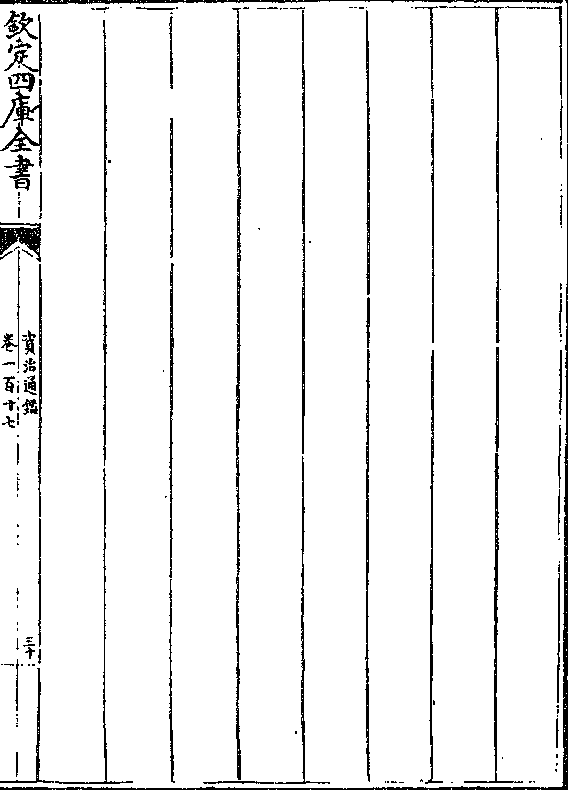 欽定四庫全書
資治通鑑
卷一百十七
三十